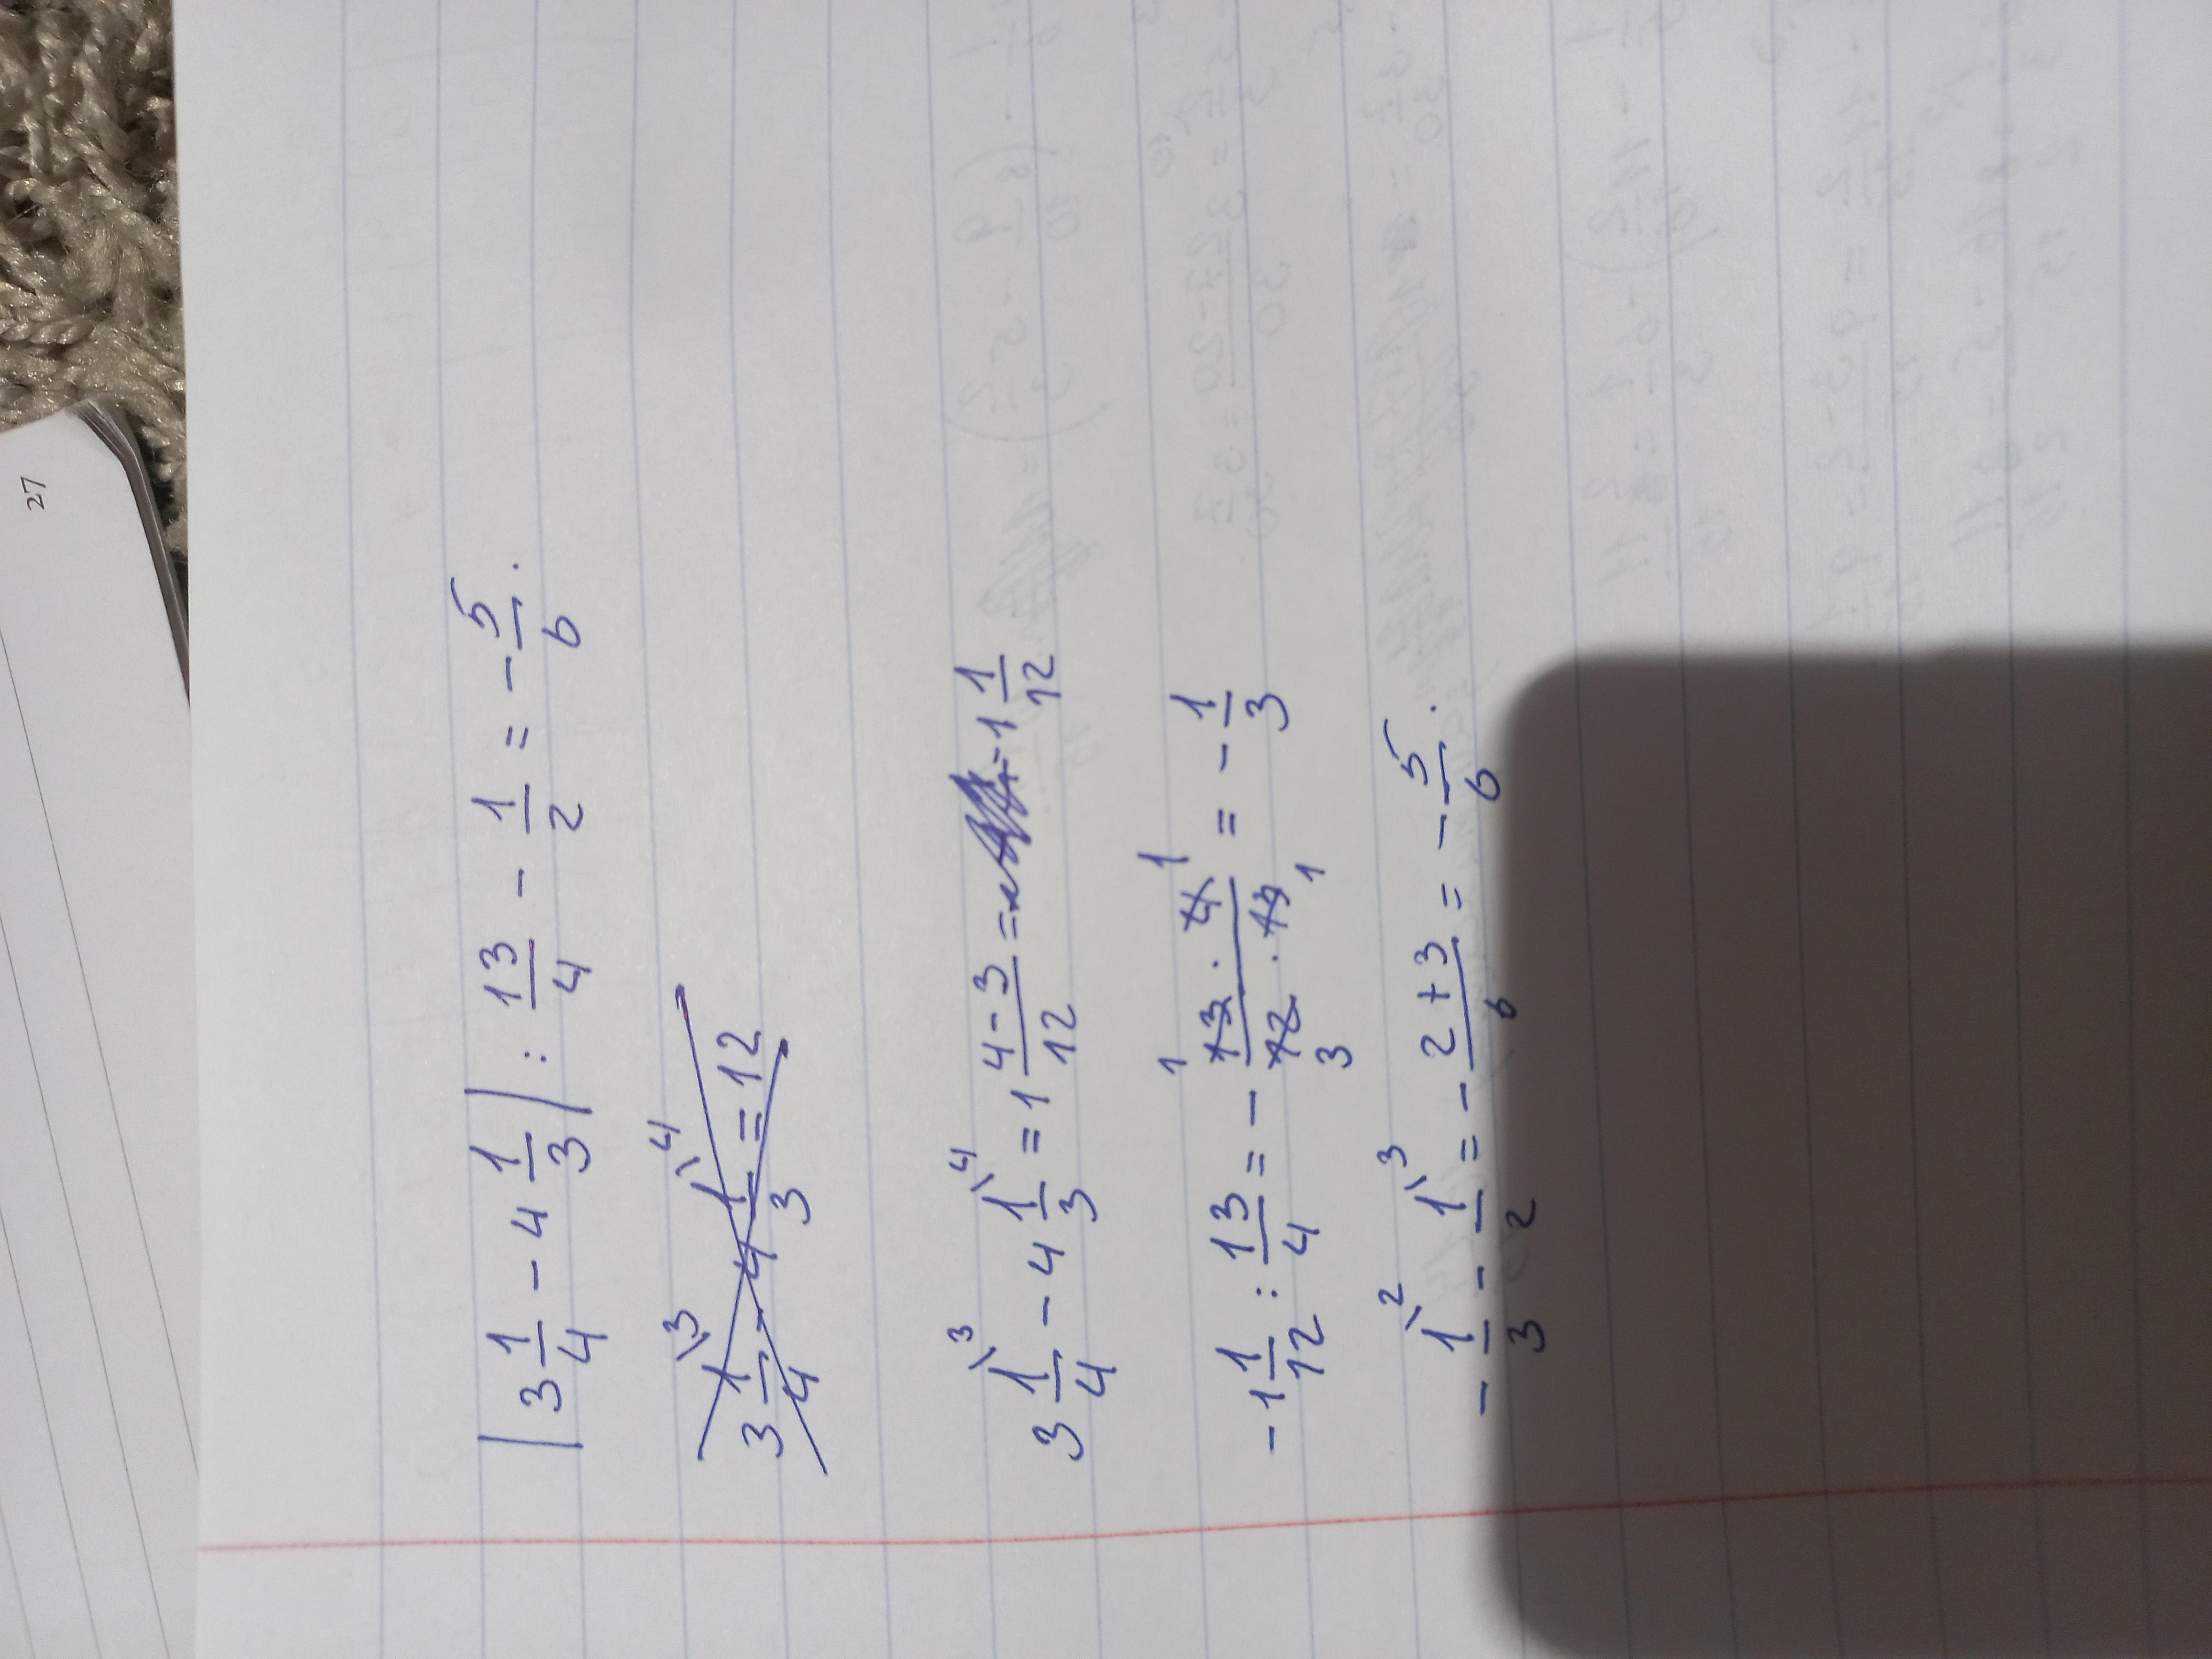 (3 1/4 - 4 1/3) : 13/4 - 1/2 = - 5/6.
3 1\3/4 - 4 1\4/3 = 12
3 1\3/4 - 4 1\4/3 = 1 4-3/12 = -1 1/12
-1 1/12 : 13/4 = - 13·4/12·13 = - 1/3
1 1 3 1
- 1\2/3 - 1\3/2 = - 2+3/6 = - 5/6.
27